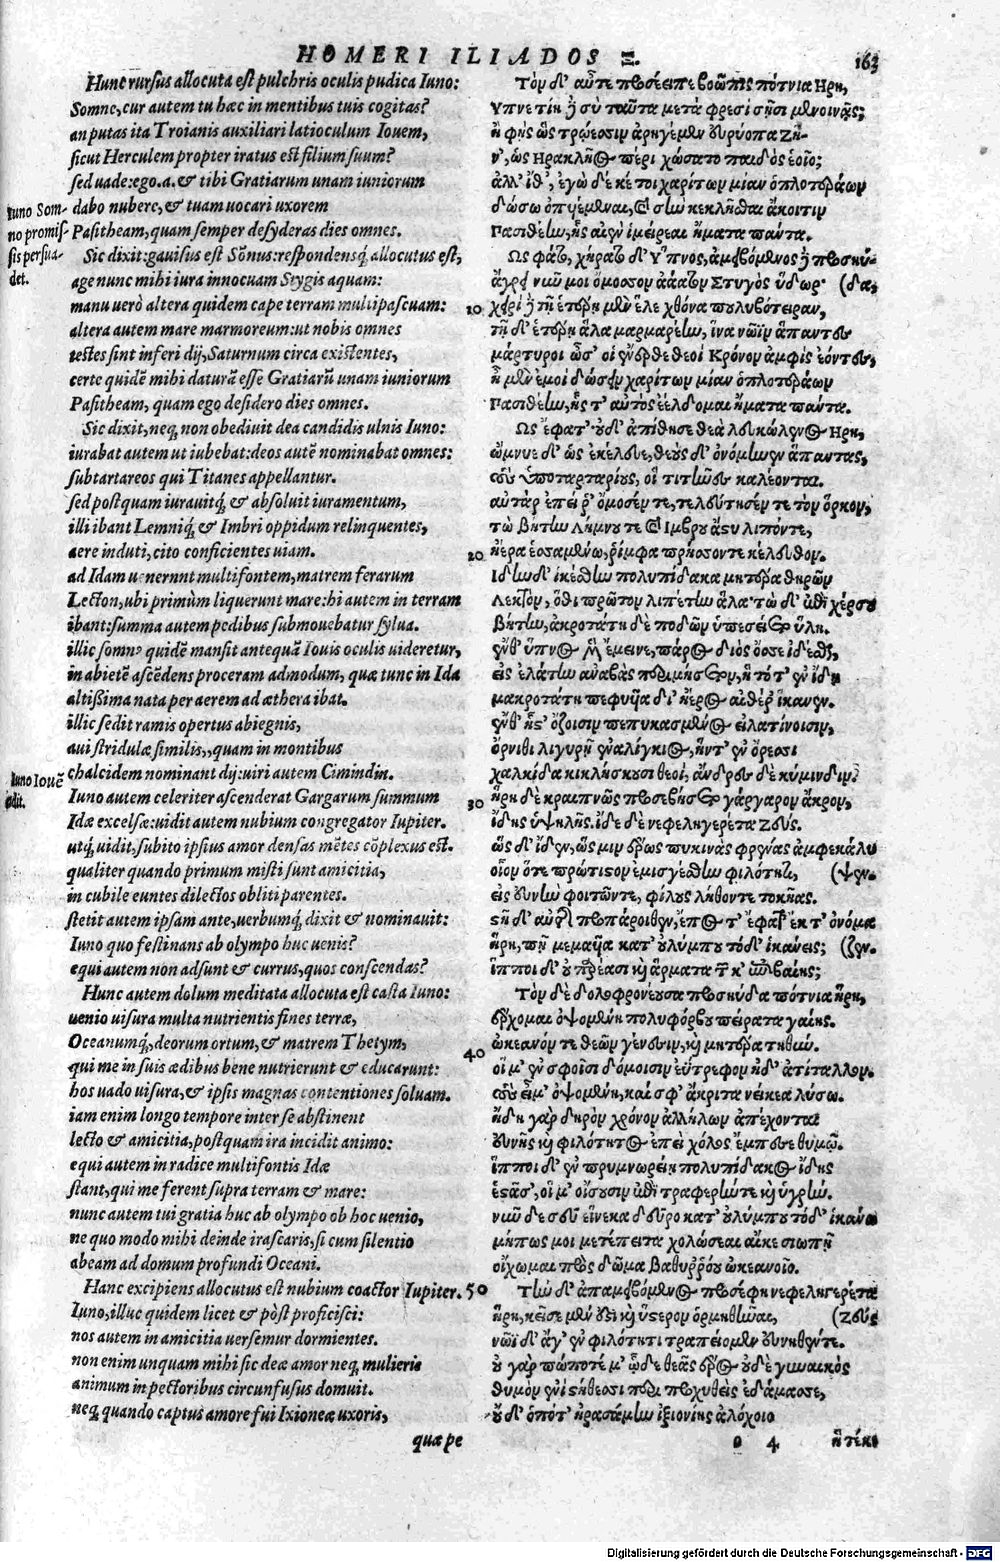 HOMERI ILIADOS Ξ. 163
Hunc rursus allocuta est pulchris oculis pudica Iuno:
Somne, cur autem tu hæc in mentibus tuis cogitas?
an putas ita Troianis auxiliari latioculum Iouem,
sicut Herculem propter iratus est filium suum?
sed uade: ego.a. & tibi Gratiarum unam iuniorum
dabo nubere, & tuam uocari uxorem
Pasitheam, quam semper desyderas dies omnes.
Sic dixit: gauisus est Sõnus: respondensq́; allocutus est,
age nunc mihi iura innocuam Stygis aquam:
manu uerò altera quidem cape terram multipascuam:
altera autem mare marmoreum: ut nobis omnes
testes sint inferi dij, Saturnum circa existentes,
certe quidẽ mihi daturã esse Gratiarũ unam iuniorum
Pasitheam, quam ego desidero dies omnes.
Sic dixit, neq; non obediuit dea candidis ulnis Iuno:
iurabat autem ut iubebat: deos autẽ nominabat omnes:
subtartareos qui Titanes appellantur.
sed postquam iurauitq́; & absoluit iuramentum,
illi ibant Lemniq́; & Imbri oppidum relinquentes,
aere induti, cito conficientes uiam.
ad Idam uenerunt multifontem, matrem ferarum
Lecton, ubi primùm liquerunt mare: hi autem in terram
ibant: summa autem pedibus submouebatur sylua.
illic somnꝰ quidẽ mansit antequã Iouis oculis uideretur,
in abietẽ ascẽdens proceram admodum, quæ tunc in Ida
altissima nata per aerem ad æthera ibat.
illic sedit ramis opertus abiegnis,
aui stridulæ similis,, quam in montibus
chalcidem nominant dij: uiri autem Cimindin.
Iuno autem celeriter ascenderat Gargarum summum
Idæ excelsæ: uidit autem nubium congregator Iupiter.
utq́; uidit, subito ipsius amor densas mẽtes cõplexus est.
qualiter quando primum misti sunt amicitia,
in cubile euntes dilectos obliti parentes.
stetit autem ipsam ante, uerbumq́; dixit & nominauit:
Iuno quo festinans ab olympo huc uenis?
equi autem non adsunt & currus, quos conscendas?
Hunc autem dolum meditata allocuta est casta Iuno:
uenio uisura multa nutrientis fines terræ,
Oceanumq́;, deorum ortum, & matrem Thetym,
qui me in suis ædibus bene nutrierunt & educarunt:
hos uado uisura, & ipsis magnas contentiones soluam.
iam enim longo tempore inter se abstinent
lecto & amicitia, postquam ira incidit animo:
equi autem in radice multifontis Idæ
stant, qui me ferent supra terram & mare:
nunc autem tui gratia huc ab olympo ob hoc uenio,
ne quo modo mihi deinde irascaris, si cum silentio
abeam ad domum profundi Oceani.
Hanc excipiens allocutus est nubium coactor Iupiter.
Iuno, illuc quidem licet & pòst proficisci:
nos autem in amicitia uersemur dormientes.
non enim unquam mihi sic deæ amor neq; mulieris
animum in pectoribus circunfusus domuit.
neq; quando captus amore fui Ixioneæ uxoris,
quæ pe
Iuno Som-
no promis-
sis persua-
det.
Iuno Iouẽ
adit.
Τὸν δ' αὖτε προσέειπε βοῶπις πότνια Ηρη,
Υπνε τίη δὲ σὺ ταῦτα μετὰ φρεσὶ σῇσι μενοινᾷς;
ἢ φῂς ὣς τρώεσσιν ἀρηγέμεν εὐρύοπα Ζῆ-
ν', ὡς Ηρακλῆος πέρι χώσατο παιδὸς ἑοῖο;
ἀλλ' ἴθ', ἐγὼ δέ κέ τοι χαρίτων μίαν ὁπλοτεράων
δώσω ὀπυέμεναι, καὶ σὴν κεκλῆσθαι ἄκοιτιν
Πασιθέην, ἧς αἰὲν ἱμείρεαι ἤματα πάντα.
Ως φάτο, χήρατο δ' Υ῞πνος, ἀμειβόμενος δὲ προσηύ-
ἄγρει νῦν μοι ὄμοσσον ἀάατον Στυγὸς ὕδωρ· (δα,
10 χειρὶ δὲ τῇ ἑτέρῃ μὲν ἕλε χθόνα πολυβότειραν,
τῇ δ' ἑτέρῃ ἅλα μαρμαρέην, ἵνα νῶϊν ἅπαντες
μάρτυροι ὦσ' οἱ ἔνερθε θεοὶ Κρόνον ἀμφὶς ἐόντες,
ἦ μὲν ἐμοὶ δώσειν χαρίτων μίαν ὁπλοτεράων
Πασιθέην, ἧς τ' αὐτὸς ἐέλδομαι ἤματα πάντα.
Ως ἔφατ' οὐδ' ἀπίθησε θεὰ λευκώλενος Ηρη,
ὤμνυε δ' ὡς ἐκέλευε, θεοὺς δ' ὀνόμηνεν ἅπαντας,
τοὺς ὑποταρταρίους, οἳ τιτῆνες καλέονται.
αὐτὰρ ἐπεί ῥ' ὄμοσέν τε, τελεύτησέν τε τὸν ὅρκον,
τὼ βήτην Λήμνου τε καὶ Ιμβρου ἄστυ λιπόντε,
20 ἠέρα ἑσσαμένω, ῥίμφα πρήσσοντε κέλευθον.
Ιδην δ' ἱκέσθην πολυπίδακα μητέρα θηρῶν
Λεκτὸν, ὅθι πρῶτον λιπέτην ἅλα· τὼ δ' ἐπὶ χέρσου
βήτην, ἀκροτάτη δὲ ποδῶν ὑπεσείετο ὕλη.
ἔνθ' ὕπνος μὲν ἔμεινε, πάρος διὸς ὄσσε ἰδέσθαι,
εἰς ἐλάτην ἀναβὰς περιμήκετον, ἣ τότ' ἐν ἴδῃ
μακροτάτη πεφυῖα δι' ἠέρος αἰθέρ' ἵκανεν.
ἔνθ' ἧστ' ὄζοισιν πεπυκασμένος εἰλατίνοισιν,
ὄρνιθι λιγυρῇ ἐναλίγκιος, ἥντ' ἐν ὄρεσσι
χαλκίδα κικλήσκουσι θεοί, ἄνδρες δὲ κύμινδιν.
30 ἥρη δὲ κραιπνῶς προσεβήσετο γάργαρον ἄκρον,
ἴδης ὑψηλῆς. ἴδε δὲ νεφεληγερέτα Ζεύς.
ὡς δ' ἴδεν, ὥς μιν ἔρως πυκινὰς φρένας ἀμφεκάλυ
οἷον ὅτε πρώτιστον ἐμισγέσθην φιλότητι, (ψεν.
εἰς εὐνὴν φοιτῶντε, φίλους λήθοντε τοκῆας.
στῆ δ' αὐτῆς προπάροιθεν, ἔπος τ' ἔφατ' ἔκ τ' ὀνόμα
ἥρη, πῇ μεμαυῖα κατ' οὐλύμπου τόδ' ἱκάνεις; (ζεν.
ἵπποι δ' οὐ παρέασι καὶ ἅρματα τῶν κ' ἐπιβαίης;
Τὸν δὲ δολοφρονέουσα προσηύδα πότνια ἥρη,
ἔρχομαι ὀψομένη πολυφόρβου πείρατα γαίης.
40 ὠκεανόν τε θεῶν γένεσιν, καὶ μητέρα τηθύν.
οἵ μ' ἐν σφοῖσι δόμοισιν ἐΰτρεφον ἠδ' ἀτίταλλον.
τοὺς εἶμ' ὀψομένη, καί σφ' ἄκριτα νείκεα λύσω.
ἤδη γὰρ δηρὸν χρόνον ἀλλήλων ἀπέχονται
εὐνῆς καὶ φιλότητος ἐπεὶ χόλος ἔμπεσε θυμῷ.
ἵπποι δ' ἐν πρυμνωρείῃ πολυπίδακος ἴδης
ἑστᾶσ', οἵ μ' οἴσουσιν ἐπὶ τραφερήν τε καὶ ὑγρήν.
νῦν δὲ σεῦ εἵνεκα δεῦρο κατ' οὐλύμπου τόδ' ἱκάνω
μήπως μοι μετέπειτα χολώσεαι αἴκε σιωπῇ
οἴχωμαι πρὸς δῶμα βαθυῤῥόου ὠκεανοῖο.
50 Τὴν δ' ἀπαμειβόμενος προσέφη νεφεληγερέτα
ἥρη, κεῖσε μὲν ἔστι καὶ ὕστερον ὁρμηθῆναι, (Ζεύς
νῶϊ δ' ἄγ' ἐν φιλότητι τραπείομεν εὐνηθέντε.
οὐ γὰρ πώποτέ μ' ὧδε θεᾶς ἔρος οὐδὲ γυναικὸς
θυμὸν ἐνὶ στήθεσσι περιπροχυθεὶς ἐδάμασσε,
οὐδ' ὁπότ' ἠρασάμην ἰξιονίης ἀλόχοιο
o 4 ἣ τέκε
Digitalisierung gefördert durch die Deutsche Forschungsgemeinschaft - DFG